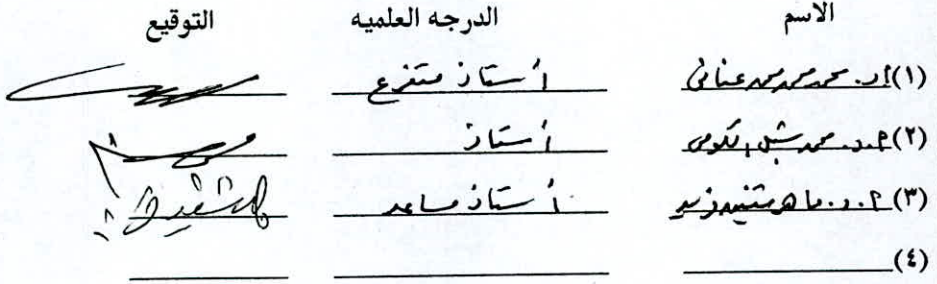 الاسم الدرجه العلميه التوقيع
(١) أ.د. محمد محمد محمد عنانى أستاذ متفرغ
(٢) أ.د. محمد شبل الكومى أستاذ
(٣) أ.د. ماهر شفيق فريد أستاذ مساعد
(٤)